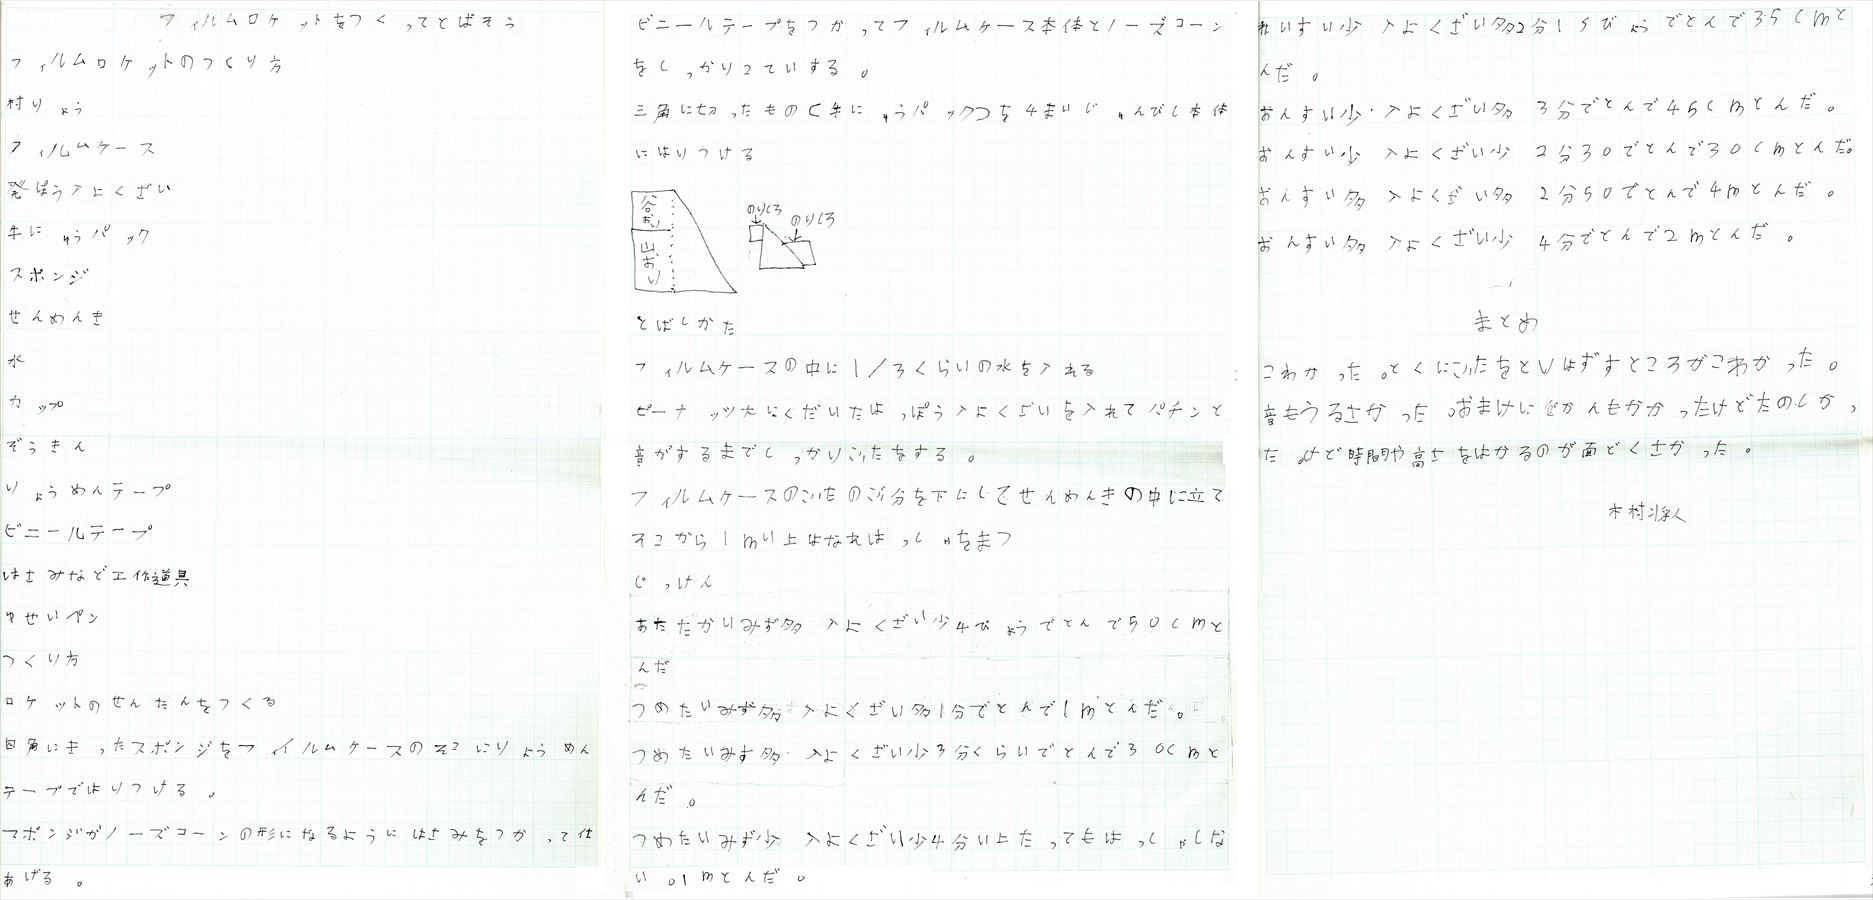 フィルムロケットをつくってとばそう
フィルムロケットのつくり方
村りょう
フィルムケース
発ぽう入よくざい
牛にゅうパック
スポンジ
せんめんき
水
カップ
ぞうきん
りょうめんテープ
ビニールテープ
はさみなど工作道具
ゆせいペン
つくり方
ロケットのせんたんをつくる
四角にきったスポンジをフィイルムケースのそこにりょうめん
テープではりつける。
スポンジがノーズコーンの形になるようにはさみをつかって仕
あげる。
ビニールテープをつかってフィルムケース本体とノーズコーン
をしっかりこていする。
三角に切ったもの(牛にゅうパック)を4まいじゅんびし本体
にはりつける
谷おり
山おり
のりしろ
のりしろ
とばしかた
フィルムケースの中に1/3くらいの水を入れる
ピーナッツ大にくだいたはっぽう入よくざいを入れてパチンと
音がするまでしっかりふたをする。
フィルムケースのふたのぶ分を下にしてせんめんきの中に立て
そこから1mい上はなれはっしゃをまつ
じっけん
あたたかいみず多 入よくざい少4びょうでとんで50cmと
んだ
つめたいみず多 入よくざい多1分でとんで1mとんだ。
つめたいみず多 入よくざい少3分くらいでとんで30cmと
んだ。
つめたいみず少 入よくざい少4分い上たってもはっしゃしな
い。1mとんだ。
れいすい少 入よくざい多2分15びょうでとんで35cmと
んだ。
おんすい少 入よくざい多 3分でとんで45cmとんだ。
おんすい少 入よくざい少 2分30でとんで30cmとんだ。
おんすい多 入よくざい多 2分50でとんで4mとんだ。
おんすい多 入よくざい少 4分でとんで2mとんだ。
まとめ
こわかった。とくにふたをとりはずすところがこわかった。
音もうるさかった。おまけにじかんもかかったけどたのしかっ
たけど時間や高さをはかるのが面どくさかった。
木村将人